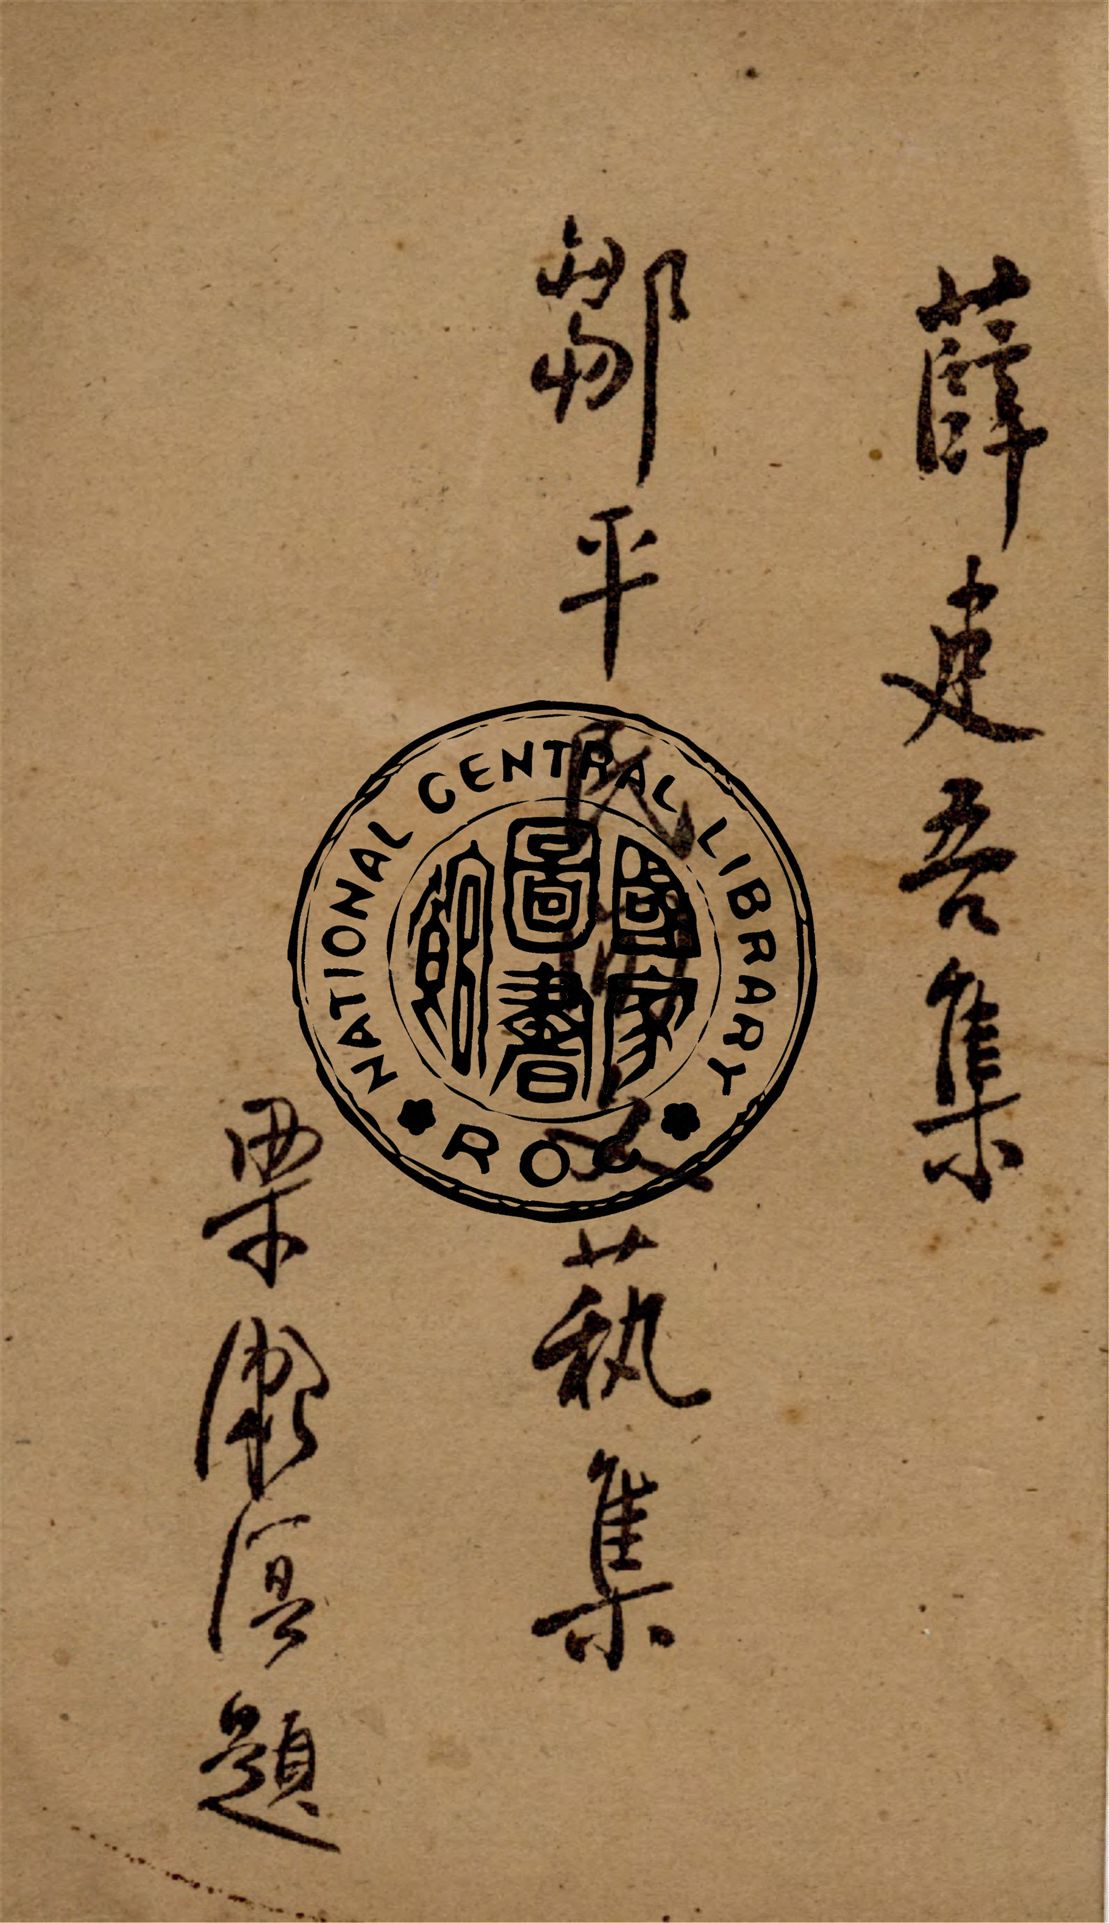 薛建吾集
鄒平民間文藝集
梁漱溟題
NATIONAL CENTRAL LIBRARY
ROC
國家
圖書
館